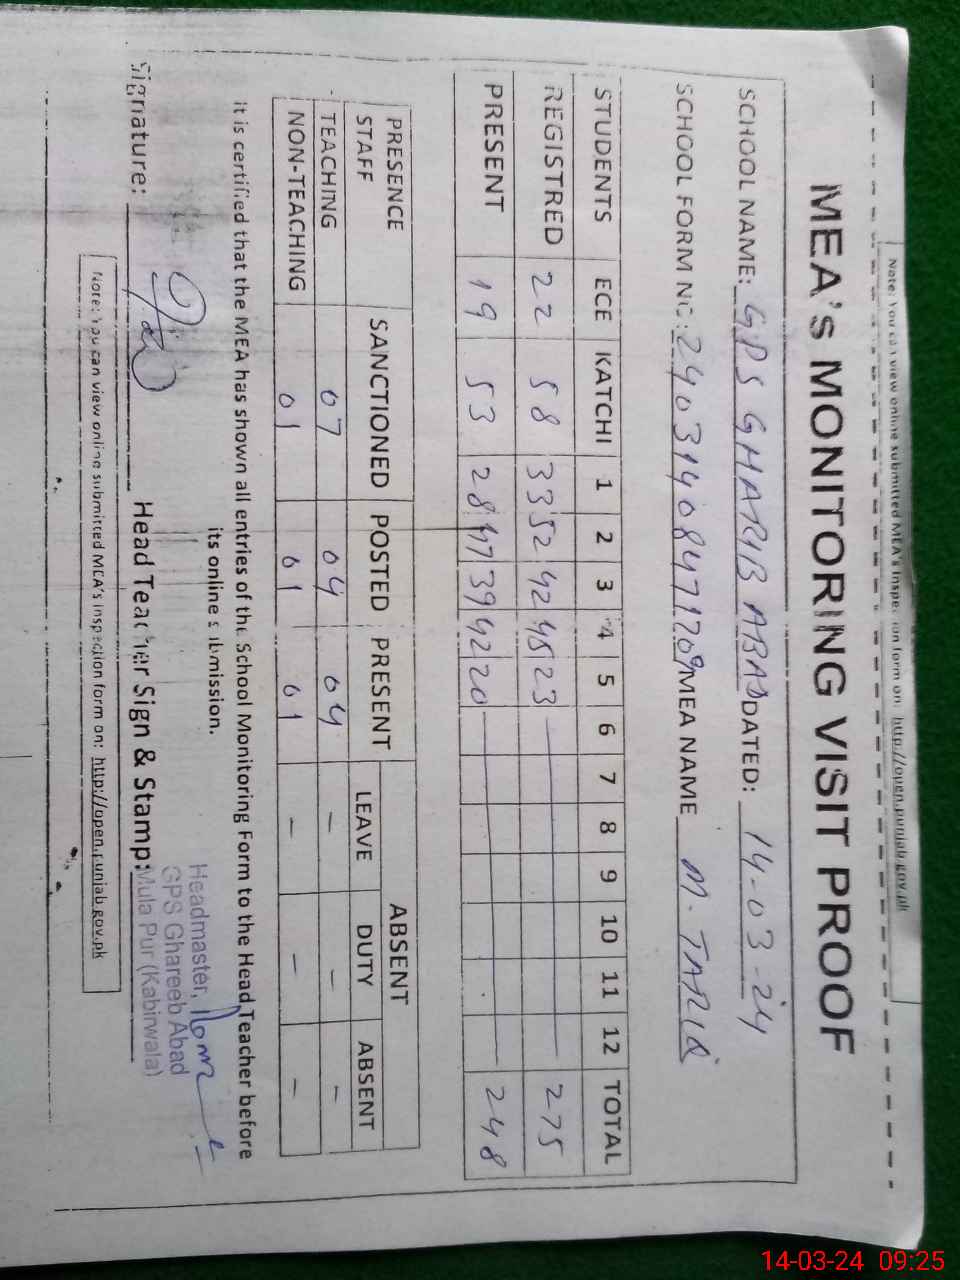 Note: You can view online submitted MEA's Inspection form on: http://open.punjab.gov.pk
MEA'S MONITORING VISIT PROOF
SCHOOL NAME: GPS GHARIB ABAD DATED: 14-03-24
SCHOOL FORM NO: 2403140847170 MEA NAME M. TARIQ
STUDENTS ECE KATCHI 1 2 3 4 5 6 7 8 9 10 11 12 TOTAL
REGISTRED 22 58 33 52 42 45 23 275
PRESENT 19 53 28 47 39 42 20 248
PRESENCE STAFF SANCTIONED POSTED PRESENT ABSENT
LEAVE DUTY ABSENT
TEACHING 07 04 04 - - -
NON-TEACHING 01 01 01 - - -
It is certified that the MEA has shown all entries of the School Monitoring Form to the Head Teacher before
its online submission.
Signature: Head Teacher Sign & Stamp:
Headmaster,
GPS Ghareeb Abad
Mula Pur (Kabirwala)
Note: You can view online submitted MEA's inspection form on: http://open.punjab.gov.pk
14-03-24 09:25